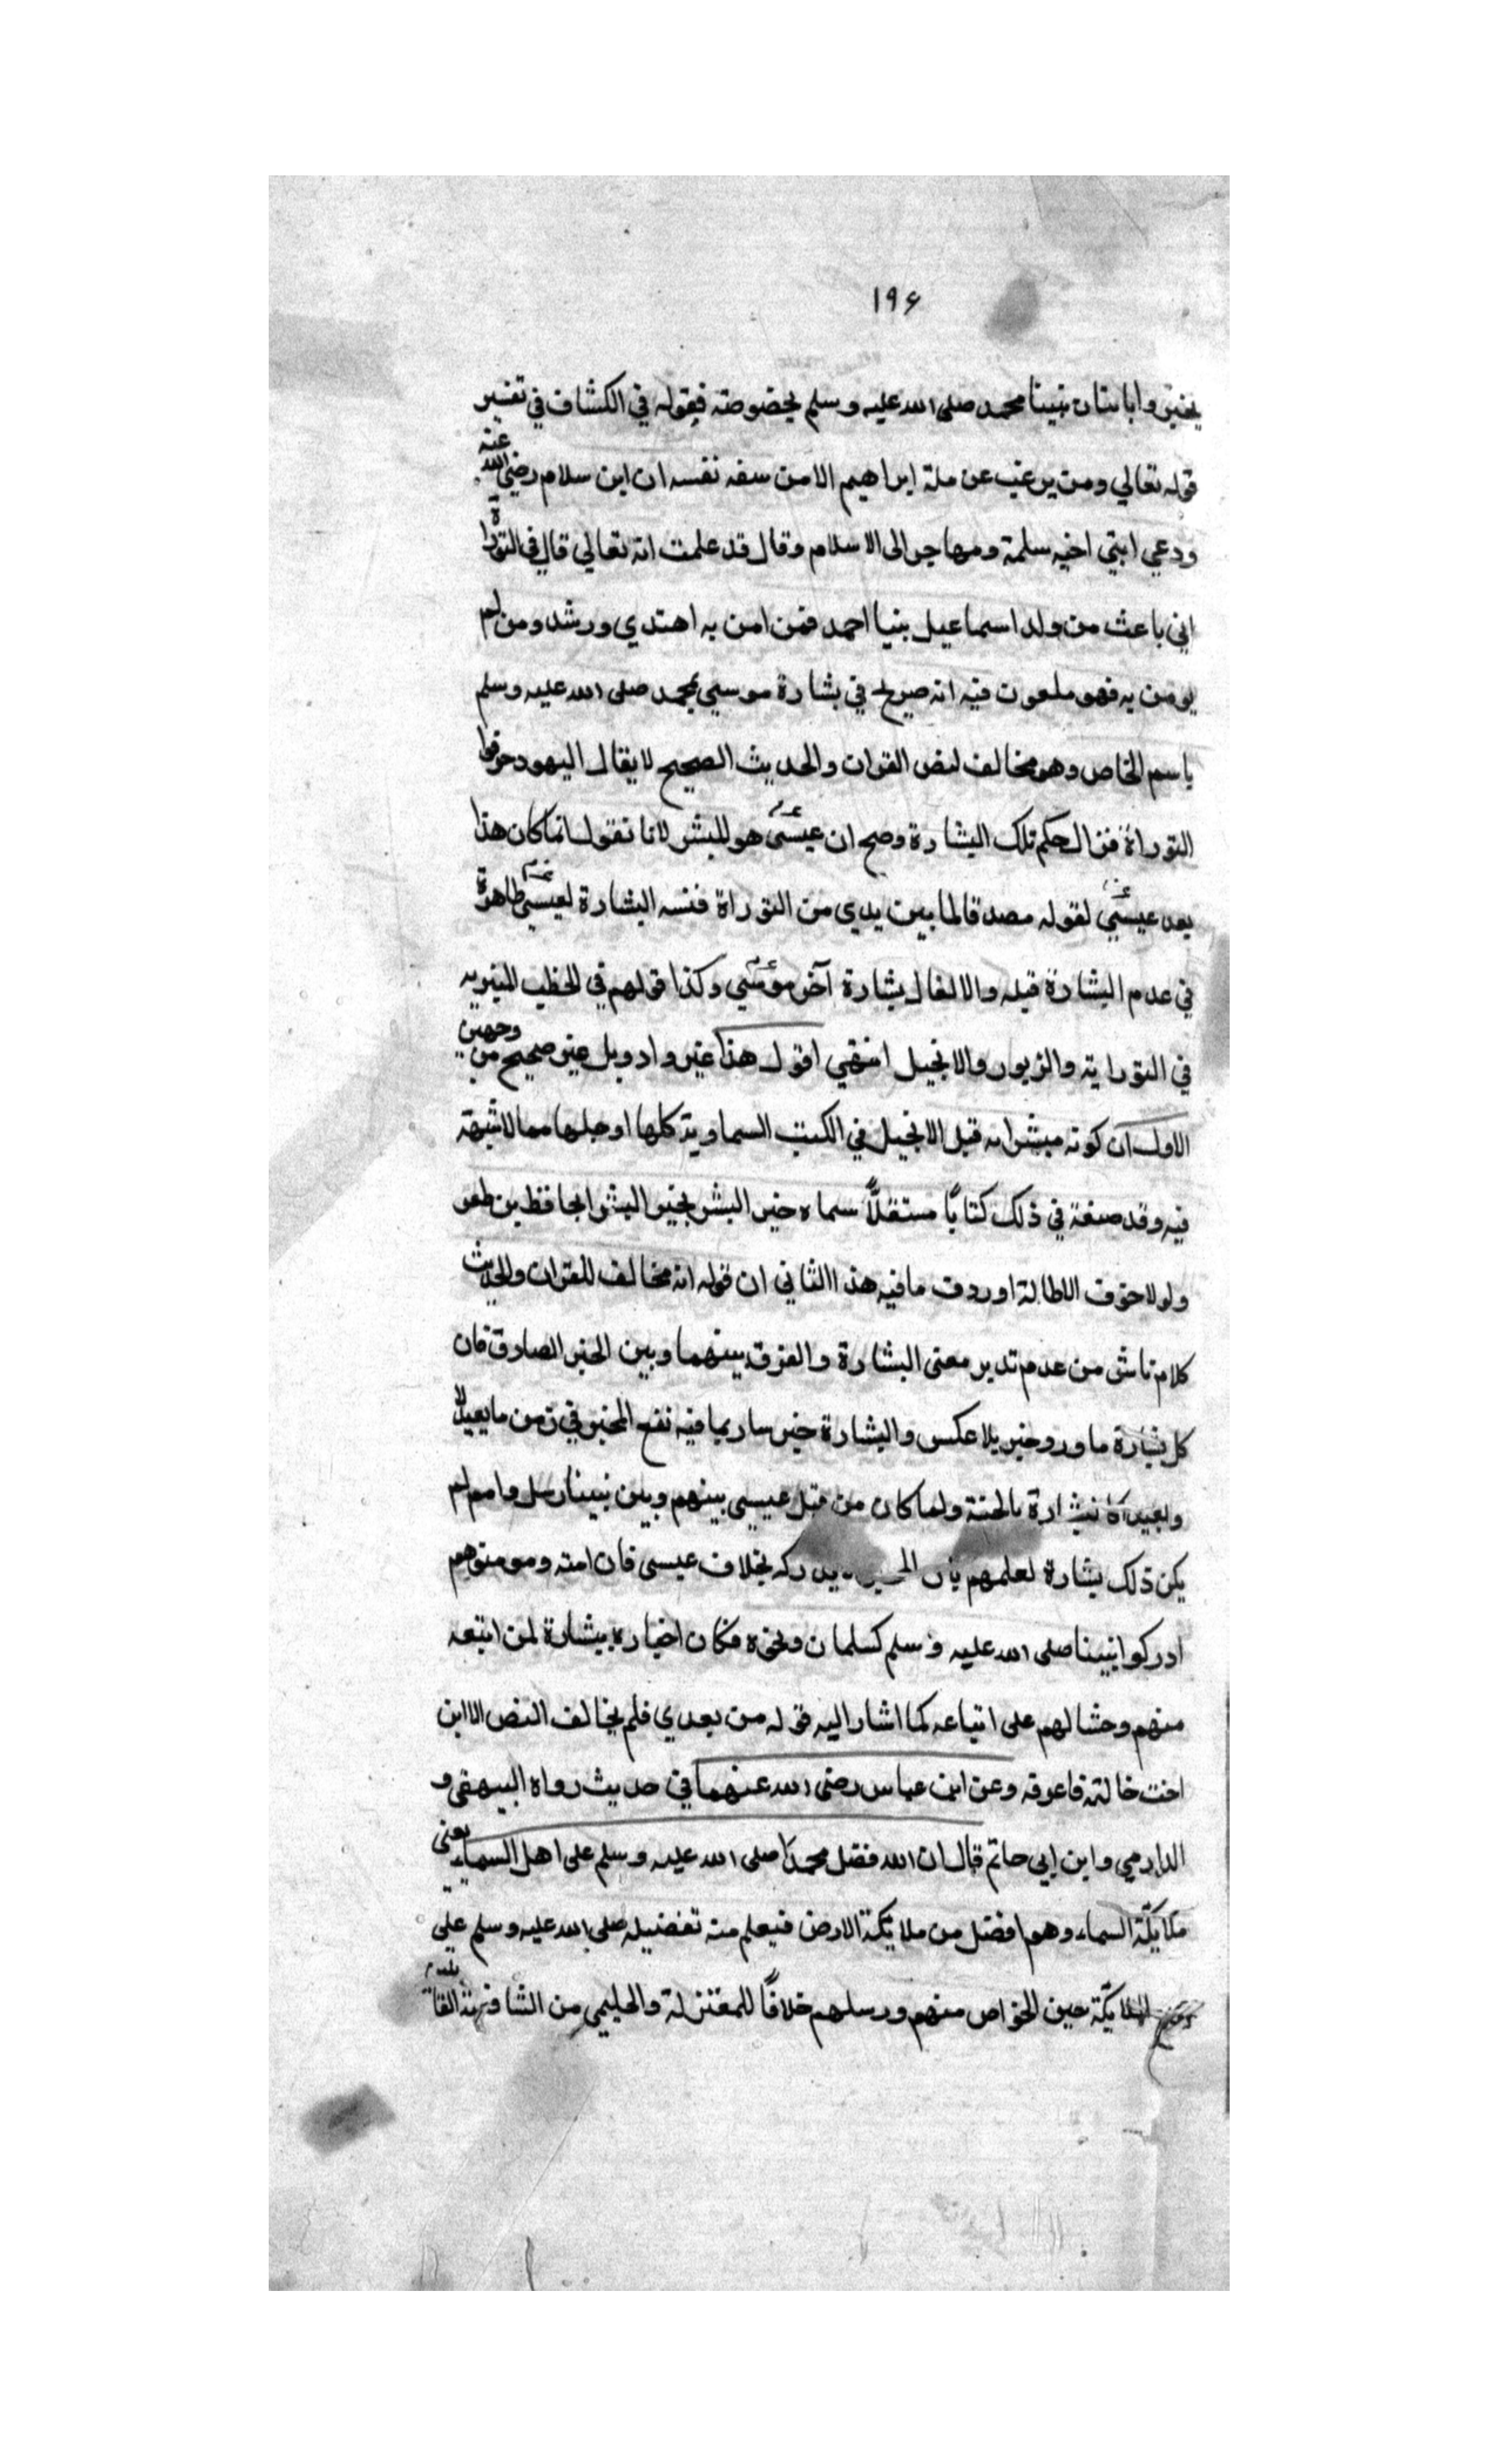 ١٩۶
بخير واما بتان نبينا محمد صلى الله عليه وسلم بخصوصته فقوله في الكشاف في تفسير
قوله تعالي ومن يرغب عن ملة ابراهيم الا من سفه نفسه ان ابن سلام رضي الله عنه
ودعي ابني اخيه سلمة ومهاجر الى الاسلام وقال قد علمت انه تعالي قال في التوراة
اني باعث من ولد اسماعيل بنيا احمد فمن امن به اهتدي ورشد ومن لم
يومن به فهو ملعون فيه انه صريح في بشارة موسي بمحمد صلى الله عليه وسلم
باسم الخاص وهو مخالف لنص القران والحديث الصحيح لا يقال اليهود حرفوا
التوراة فزال حكم تلك البشارة وصح ان عيسى عم هو المبشر لانا نقول انما كان هذا
بعد عيسي عم لقوله مصدقا لما بين يدي من التوراة فنسه البشارة لعيسي عم ظاهرة
في عدم البشارة قبله والا لقال بشارة آخر موسي عم وكذا قولهم في الخطب المنبويه
في التوراية والزبور والانجيل انتهي اقول هذا غير وارد بل غير صحيح من وجهين
الاول ان كونه مبشرا به قبل الانجيل في الكتب السماوية كلها او جلها مما لا شبهة
فيه وقد صنفه في ذلك كتابًا مستقلًا سماه خير البشر بخير البشر الحافظ بن ظفر
ولولا خوف الاطالة اوردت ما فيه هذا الثاني ان قوله انه مخالف للقران والحديث
كلام ناش من عدم تدبر معنى البشارة والفرق بينهما وبين الخبر الصادق فان
كل بشارة ما ورد خبر بلا عكس والبشارة خبر سار بما فيه نفع المخبر في زمن ما
بشارة بالجنة ولما كان من قبل عيسي بينهم وبين نبينا رسل وامم لم
يكن ذلك بشارة لعلمهم بان يدركه بخلاف عيسى فان امته ومومنوهم
ادركوا نبينا صلى الله عليه وسلم كسلمان ونحوه فكان اخباره بشارة لمن اتبعه
منهم وحثا لهم على اتباعه كما اشار اليه قوله من بعدي فلم يخالف النص الا ابن
اخت خالته فاعرفه وعن ابن عباس رضى الله عنهما في حديث رواه البيهقى و
الدارمي وابن ابي حاتم قال ان الله فضل محمدًا صلى الله عليه وسلم على اهل السماء يعني
ملايكة السماء وهم افضل من ملايكة الارض فيعلم منه تفضيله صلى الله عليه وسلم على
الملايكة حين الخواص منهم ورسلهم خلافًا للمعتزلة والحليمي من الشافعية